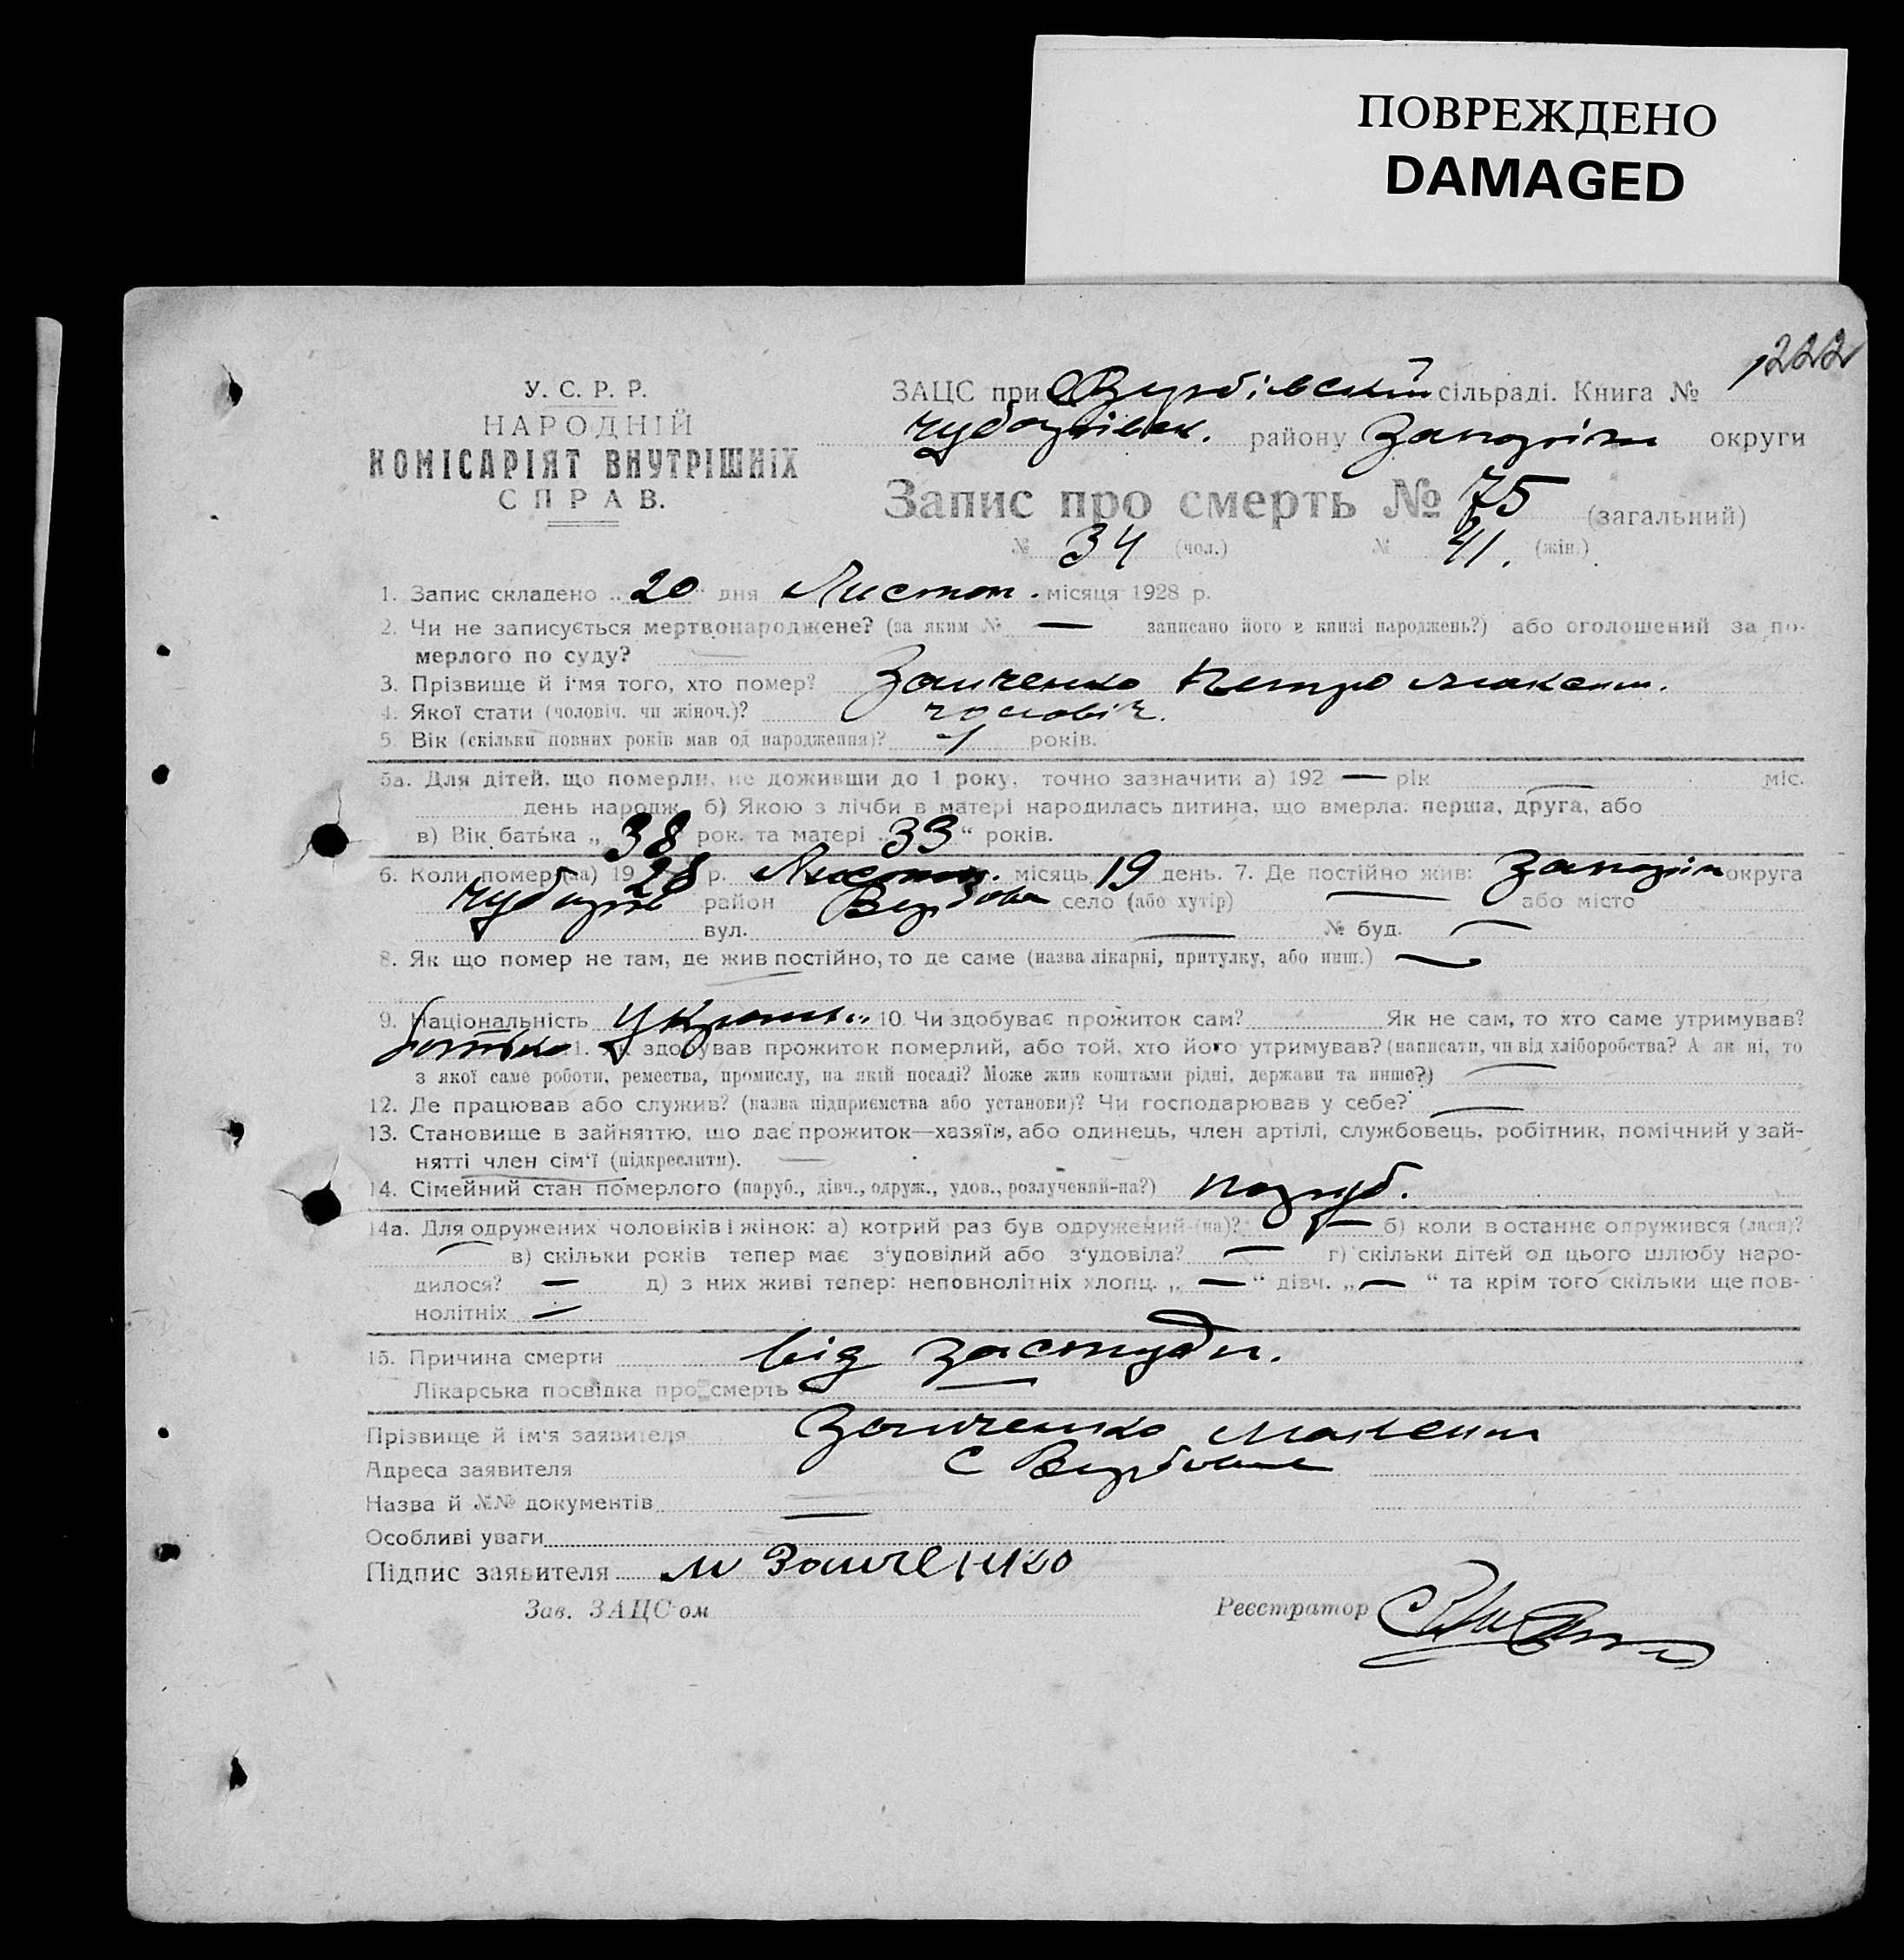 ПОВРЕЖДЕНО
DAMAGED
222
У. С. Р. Р.
НАРОДНІЙ
КОМІСАРІЯТ ВНУТРІШНІХ
СПРАВ.
ЗАЦС при Вербівській сільраді. Книга №
Чубарівськ. району Запоріж округи
Запис про смерть № 75 (загальний)
№ 34 (чол.) № 41. (жін.)
1. Запис складено 20 дня Листоп. місяця 1928 р.
2. Чи не записується мертвонароджене? (за яким № — записано його в книзі народжень?) або оголошений за по-
мерлого по суду?
3. Прізвище й ім'я того, хто помер? Заиченко Петро Максим.
4. Якої стати (чоловіч. чи жіноч.)? чоловіч.
5. Вік (скільки повних років мав од народження)? 1 років.
5а. Для дітей, що померли, не доживши до 1 року, точно зазначити а) 192 — рік — міс.
день народж. б) Якою з лічби в матері народилась дитина, що вмерла: перша, друга, або
в) Вік батька „38 рок. та матері „33“ років.
6. Коли помер(ла) 1928 р. Листоп. місяць 19 день. 7. Де постійно жив: Запоріж округа
Чубарів район Вербова село (або хутір) — або місто
вул. — № буд. —
8. Як що помер не там, де жив постійно, то де саме (назва лікарні, притулку, або инш.) —
9. Національність Україн.. 10. Чи здобуває прожиток сам? Як не сам, то хто саме утримував?
батько 11. Як здобував прожиток померлий, або той, хто його утримував? (написати, чи від хліборобства? А як ні, то
з якої саме роботи, ремества, промислу, на якій посаді? Може жив коштами рідні, держави та инше?) —
12. Де працював або служив? (назва підприємства або установи)? Чи господарював у себе? —
13. Становище в зайняттю, що дає прожиток—хазяїн, або одинець, член артілі, службовець, робітник, помічний у зай-
нятті член сім'ї (підкреслити). —
14. Сімейний стан померлого (паруб., дівч., одруж., удов., розлучений-на?) паруб.
14а. Для одружених чоловіків і жінок: а) котрий раз був одружений-(на)? — б) коли в останнє одружився (лася)?
— в) скільки років тепер має з'удовілий або з'удовіла? — г) скільки дітей од цього шлюбу наро-
дилося? — д) з них живі тепер: неповнолітніх хлопц. „—“ дівч. „—“ та крім того скільки ще пов-
нолітніх —
15. Причина смерти від застуди.
Лікарська посвідка про смерть —
Прізвище й ім'я заявителя Заиченко Максим
Адреса заявителя с Вербове
Назва й №№ документів —
Особливі уваги
Підпис заявителя М Заиченко
Зав. ЗАЦС'ом Реєстратор